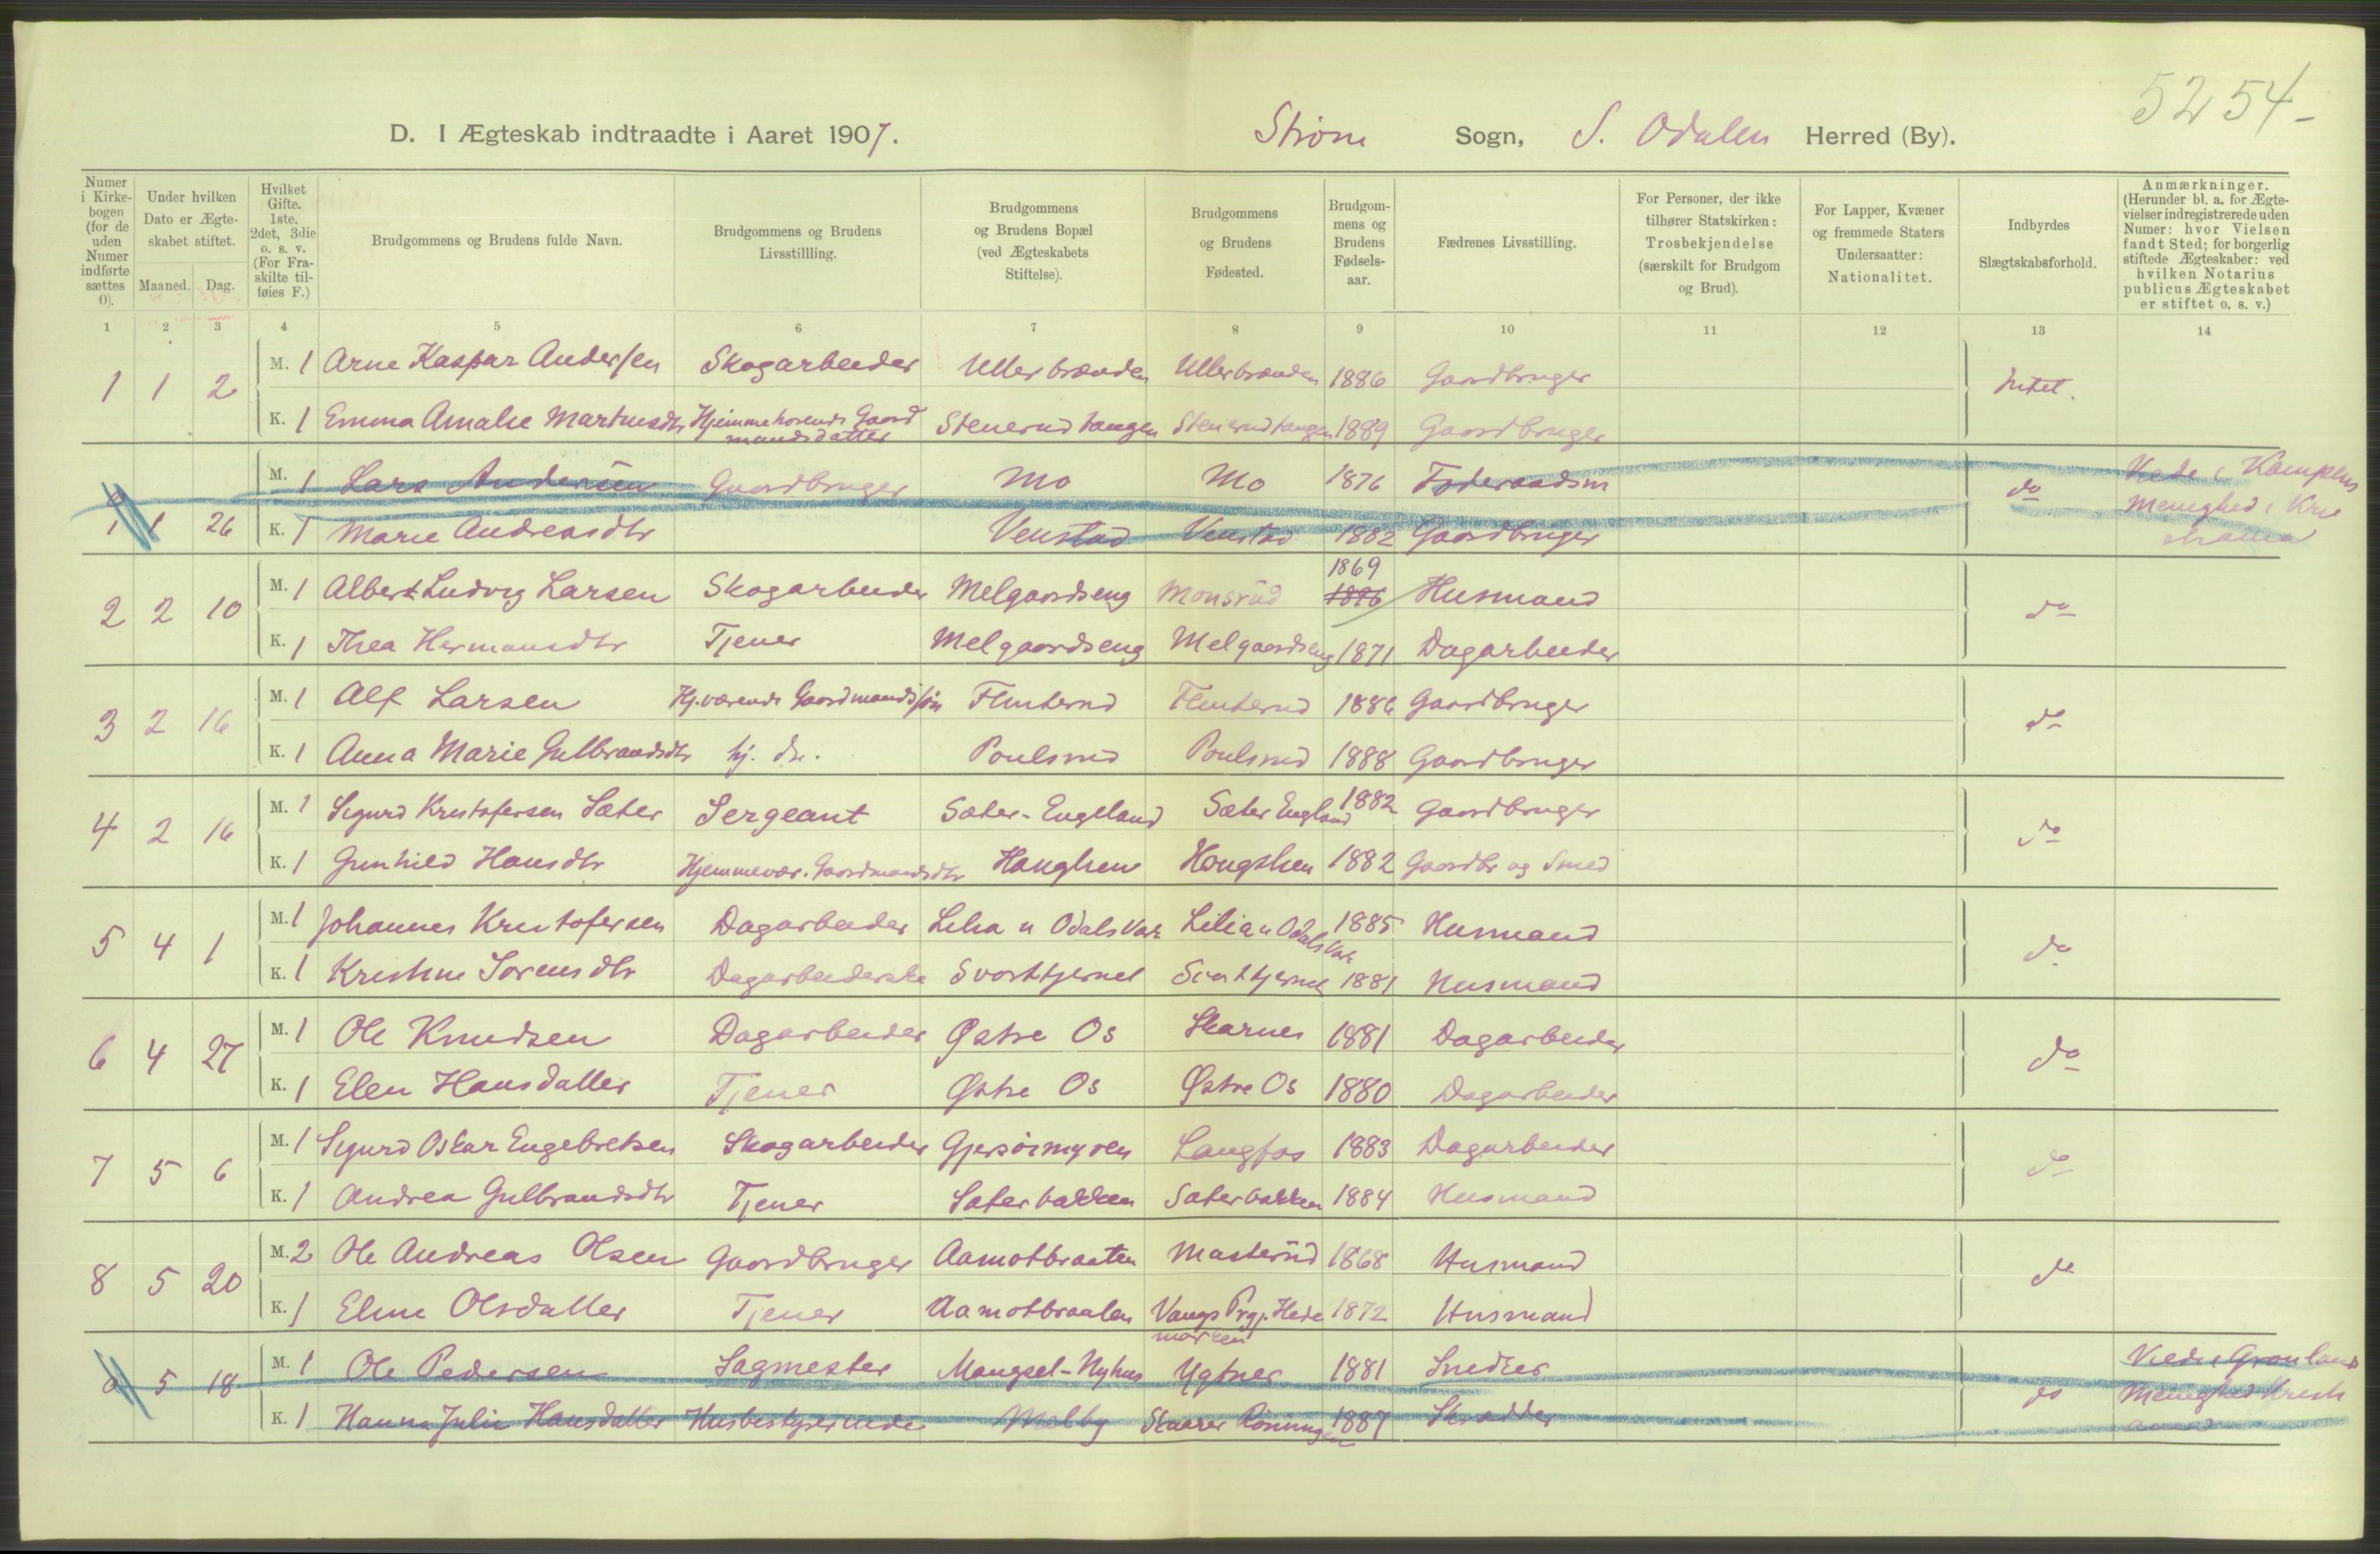 5254-
D. I Ægteskab indtraadte i Aaret 1907. Strøm Sogn, S. Odalen Herred (By).
Numer i Kirke-bogen (for de uden Numer indførte sættes 0). | Under hvilken Dato er Ægte-skabet stiftet. Maaned. Dag. | Hvilket Gifte. 1ste. 2det, 3die o. s. v. (For Fra-skilte til-føies F.) | Brudgommens og Brudens fulde Navn. | Brudgommens og Brudens Livsstillling. | Brudgommens og Brudens Bopæl (ved Ægteskabets Stiftelse). | Brudgommens og Brudens Fødested. | Brudgom-mens og Brudens Fødsels-aar. | Fædrenes Livsstilling. | For Personer, der ikke tilhører Statskirken: Trosbekjendelse (særskilt for Brudgom og Brud). | For Lapper, Kvæner og fremmede Staters Undersaatter: Nationalitet. | Indbyrdes Slægtskabsforhold. | Anmærkninger. (Herunder bl. a. for Ægte-vielser indregistrerede uden Numer: hvor Vielsen fandt Sted; for borgerlig stiftede Ægteskaber: ved hvilken Notarius publicus Ægteskabet er stiftet o. s. v.)
1 2 3 4 5 6 7 8 9 10 11 12 13 14
M. 1 Arne Kaspar Andersen Skogarbeider Ullerbrænden Ullerbrænden 1886 Gaardbruger
1 1 2 Intet.
K. 1 Emma Amalie Martinsdtr Hjemmehørende Gaard Stenerudtangen Stenerudtangen 1889 Gaardbruger
mandsdatter
M. 1 Lars Andersen Gaardbruger Mo Mo 1876 Føderaadsm Viede i Kampens
0 1 26 K. 1 Marie Andreasdtr Venstad Venstad 1882 Gaardbruger do Menighed i Kri
stiania
1869
M. 1 Albert Ludvig Larsen Skogarbeider Melgaardseng Monsrud 1896 Husmand
2 2 10 do
K. 1 Thea Hermansdtr Tjener Melgaardseng Melgaardseng 1871 Dagarbeider
M. 1 Alf Larsen Hj.værende Gaardmandssøn Flinterud Flinterud 1886 Gaardbruger
3 2 16 do
K. 1 Anna Marie Gulbrandsdtr hj. dr. Poulsrud Poulsrud 1888 Gaardbruger
M. 1 Sigurd Kristofersen Sæter Sergeant Sæter-Engeland Sæter England 1882 Gaardbruger
4 2 16 do
K. 1 Gunhild Hansdtr Hjemmevær. Gaardmandsdtr 1882 Gaardbr og Smed
M. 1 Johannes Kristofersen Dagarbeider Lilia n Odals Vark Lilia n Odals Vark 1885 Husmand
5 4 1 do
K. 1 Kristine Sørensdtr Dagarbeiderske Svarttjernet Svarttjernet 1881 Husmand
M. 1 Ole Knudsen Dagarbeider Østre Os Skarnes 1881 Dagarbeider
6 4 27 do
K. 1 Elen Hansdatter Tjener Østre Os Østre Os 1880 Dagarbeider
M. 1 Sigurd Oskar Engebretsen Skogarbeider Gjersøimyren Langfos 1883 Dagarbeider
7 5 6 do
K. 1 Andrea Gulbrandsdtr Tjener Sæterbakken Sæterbakken 1884 Husmand
M. 2 Ole Andreas Olsen Gaardbruger Aamotbraaten Masterud 1868 Husmand
8 5 20 do
K. 1 Eline Olsdatter Tjener Aamotbraaten Vangs Prgj. Hede 1872 Husmand
marken
M. 1 Ole Pedersen Sagmester Mangset-Nyhus Ygtner 1881 Snedker Viede i Grønlands
0 5 18 do Menighed Kristi
K. 1 Hanna Julie Hansdatter Husbestyrerinde Melby Skaarer 1887 Skrædder